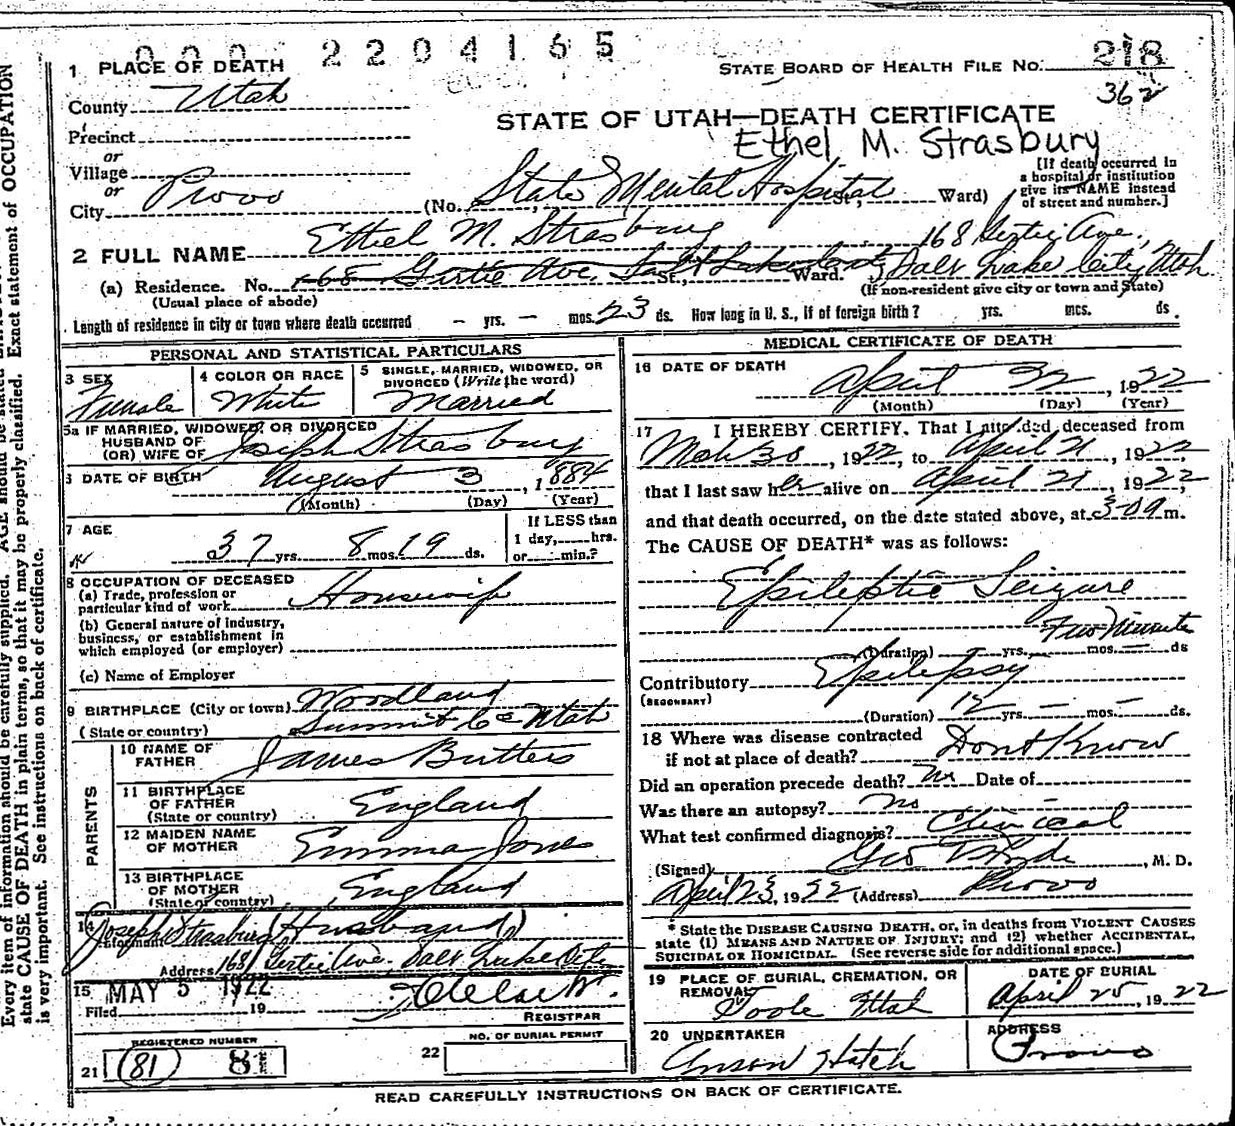 000 2204165
1 PLACE OF DEATH
STATE BOARD OF HEALTH FILE NO. 218
362
County Utah
STATE OF UTAH—DEATH CERTIFICATE
Ethel M. Strasbury
Precinct
or
Village
or
City Provo (No. State Mental Hospital St., Ward)
[If death occurred in
a hospital or institution
give its NAME instead
of street and number.]
2 FULL NAME Ethel M. Strasbury
168 Gertie Ave.,
(a) Residence. No. 168 Gertie Ave, Salt Lake St., Ward. Salt Lake City, Utah
(Usual place of abode) (If non-resident give city or town and State)
Length of residence in city or town where death occurred – yrs. – mos. 23 ds. How long in U. S., if of foreign birth? yrs. mos. ds.
PERSONAL AND STATISTICAL PARTICULARS
3 SEX Female
4 COLOR OR RACE White
5 SINGLE, MARRIED, WIDOWED, OR
DIVORCED (Write the word)
Married
5a IF MARRIED, WIDOWED, OR DIVORCED
HUSBAND OF
(OR) WIFE OF Joseph Strasbury
DATE OF BIRTH August 3, 1884
(Month) (Day) (Year)
7 AGE
37 yrs. 8 mos. 19 ds.
If LESS than
1 day, hrs.
or min.?
8 OCCUPATION OF DECEASED
(a) Trade, profession or
particular kind of work Housewife
(b) General nature of industry,
business, or establishment in
which employed (or employer)
(c) Name of Employer
9 BIRTHPLACE (City or town) Woodland
(State or country) Summit Co Utah
PARENTS
10 NAME OF
FATHER James Butters
11 BIRTHPLACE
OF FATHER
(State or country) England
12 MAIDEN NAME
OF MOTHER Emma Jones
13 BIRTHPLACE
OF MOTHER
(State or country) England
14 Joseph Strasbury (Husband)
Informant
Address 168 Gertie Ave. Salt Lake City
15 MAY 5 1922
Filed 19
REGISTRAR
REGISTERED NUMBER
21 (81) 81
NO. OF BURIAL PERMIT
22
MEDICAL CERTIFICATE OF DEATH
16 DATE OF DEATH
April 22, 1922
(Month) (Day) (Year)
17 I HEREBY CERTIFY, That I attended deceased from
Mch 30, 1922, to April 21, 1922
that I last saw her alive on April 21, 1922,
and that death occurred, on the date stated above, at 3:09 m.
The CAUSE OF DEATH* was as follows:
Epileptic Seizure
Few Minutes
(Duration) – yrs. – mos. – ds
Contributory Epilepsy
(SECONDARY)
(Duration) 12 yrs. – mos. – ds.
18 Where was disease contracted
if not at place of death? Dont Know
Did an operation precede death? No Date of
Was there an autopsy? No
What test confirmed diagnosis? Clinical
(Signed) Geo T Hyde, M. D.
April 23, 1922 (Address) Provo
* State the DISEASE CAUSING DEATH, or, in deaths from VIOLENT CAUSES
state (1) MEANS AND NATURE OF INJURY; and (2) whether ACCIDENTAL,
SUICIDAL OR HOMICIDAL. (See reverse side for additional space.)
19 PLACE OF BURIAL, CREMATION, OR
REMOVAL
Tooele Utah
DATE OF BURIAL
April 25, 1922
20 UNDERTAKER
Anson Hatch
ADDRESS
Provo
READ CAREFULLY INSTRUCTIONS ON BACK OF CERTIFICATE.
Every item of information should be carefully supplied. AGE should be stated Exact statement of OCCUPATION
state CAUSE OF DEATH in plain terms, so that it may be properly classified.
is very important. See instructions on back of certificate.